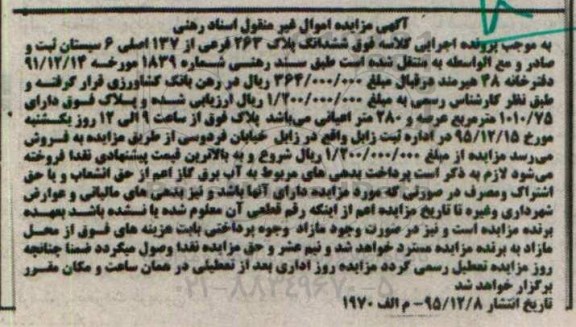 آگهی مزایده اموال غیر منقول اسناد رهنی
به موجب پرونده اجرایی کلاسه فوق ششدانگ پلاک ۲۶۳ فرعی از ۱۳۷ اصلی ۶ سیستان ثبت و
صادر و مع الواسطه به منتقل شده است طبق سند رهنی شماره ۱۸۳۹ مورخه ۹۱/۱۲/۱۴
دفترخانه ۴۸ هیرمند درقبال مبلغ ۳۶۴/۰۰۰/۰۰۰ ریال در رهن بانک کشاورزی قرار گرفته و
طبق نظر کارشناس رسمی به مبلغ ۱/۲۰۰/۰۰۰/۰۰۰ ریال ارزیابی شده و پلاک فوق دارای
۱۰۱۰/۷۵ مترمربع عرصه و ۲۸۰ متر اعیانی می‌باشد پلاک فوق از ساعت ۹ الی ۱۲ روز یکشنبه
مورخ ۹۵/۱۲/۱۵ در اداره ثبت زابل واقع در زابل خیابان فردوسی از طریق مزایده به فروش
می‌رسد مزایده از مبلغ ۱/۲۰۰/۰۰۰/۰۰۰ ریال شروع و به بالاترین قیمت پیشنهادی نقدا فروخته
می‌شود لازم به ذکر است پرداخت بدهی های مربوط به آب برق گاز اعم از حق انشعاب و یا حق
اشتراک ومصرف در صورتی که مورد مزایده دارای آنها باشد و نیز بدهی های مالیاتی و عوارض
شهرداری وغیره تا تاریخ مزایده اعم از اینکه رقم قطعی آن معلوم شده یا نشده باشد بعهده
برنده مزایده است و نیز در صورت وجود مازاد وجوه پرداختی بابت هزینه های فوق از محل
مازاد به برنده مزایده مسترد خواهد شد و نیم عشر و حق مزایده نقدا وصول میگردد ضمنا چنانچه
روز مزایده تعطیل رسمی گردد مزایده روز اداری بعد از تعطیلی در همان ساعت و مکان مقرر
برگزار خواهد شد
۰۲۱-۸۸۳۴۹۶۷۰-۵
تاریخ انتشار ۹۵/۱۲/۸- م الف ۱۹۷۰